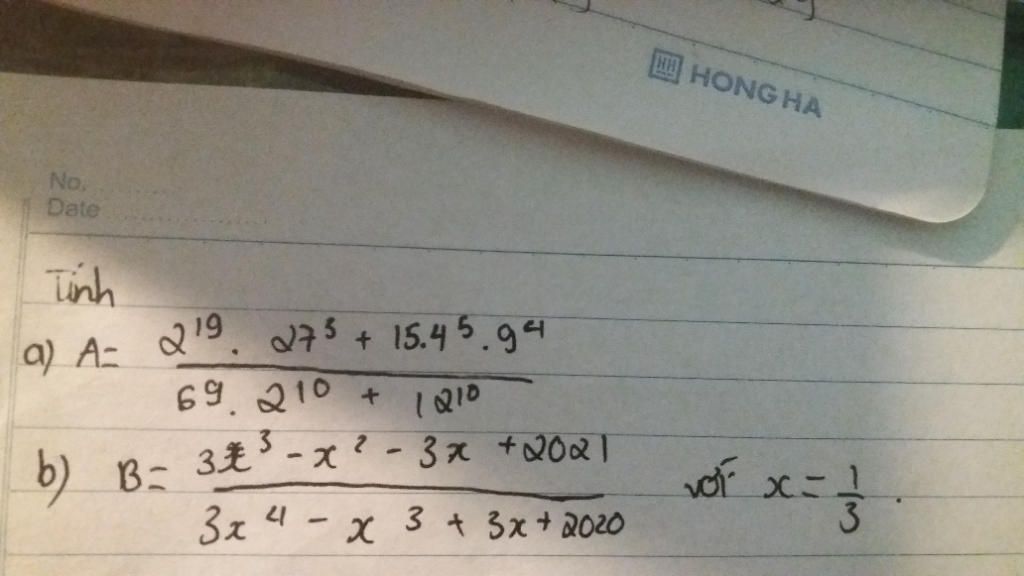 HH HONG HA
No.
Date
Tính
a) A = \frac{2^{19} . 27^3 + 15.4^5 . 9^4}{6^9 . 2^{10} + 12^{10}}
b) B = \frac{3x^3 - x^2 - 3x + 2021}{3x^4 - x^3 + 3x + 2020} với x = \frac{1}{3} .